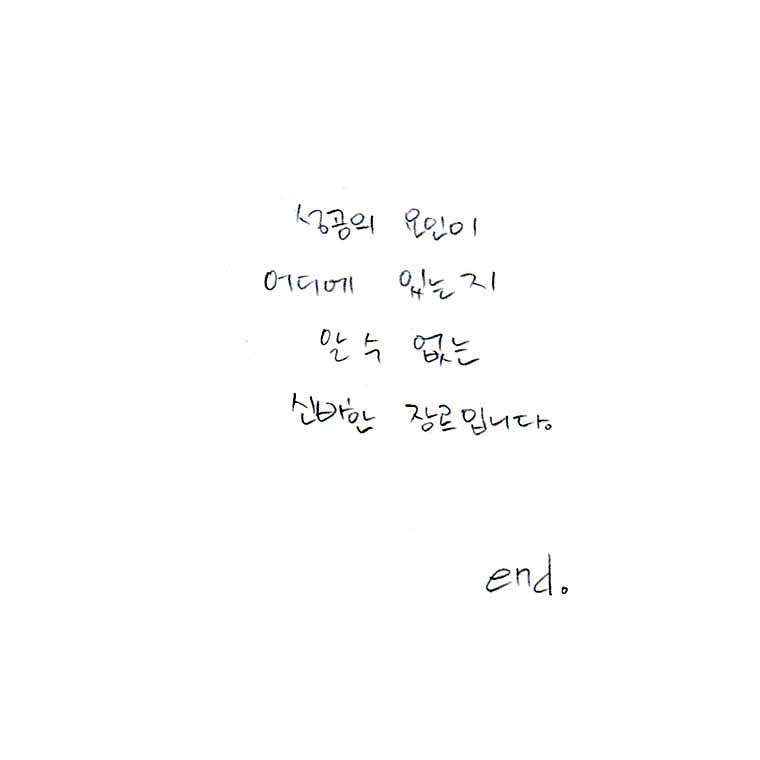 성공의 요인이
어디에 있는지
알 수 없는
신비한 장르입니다.
end.